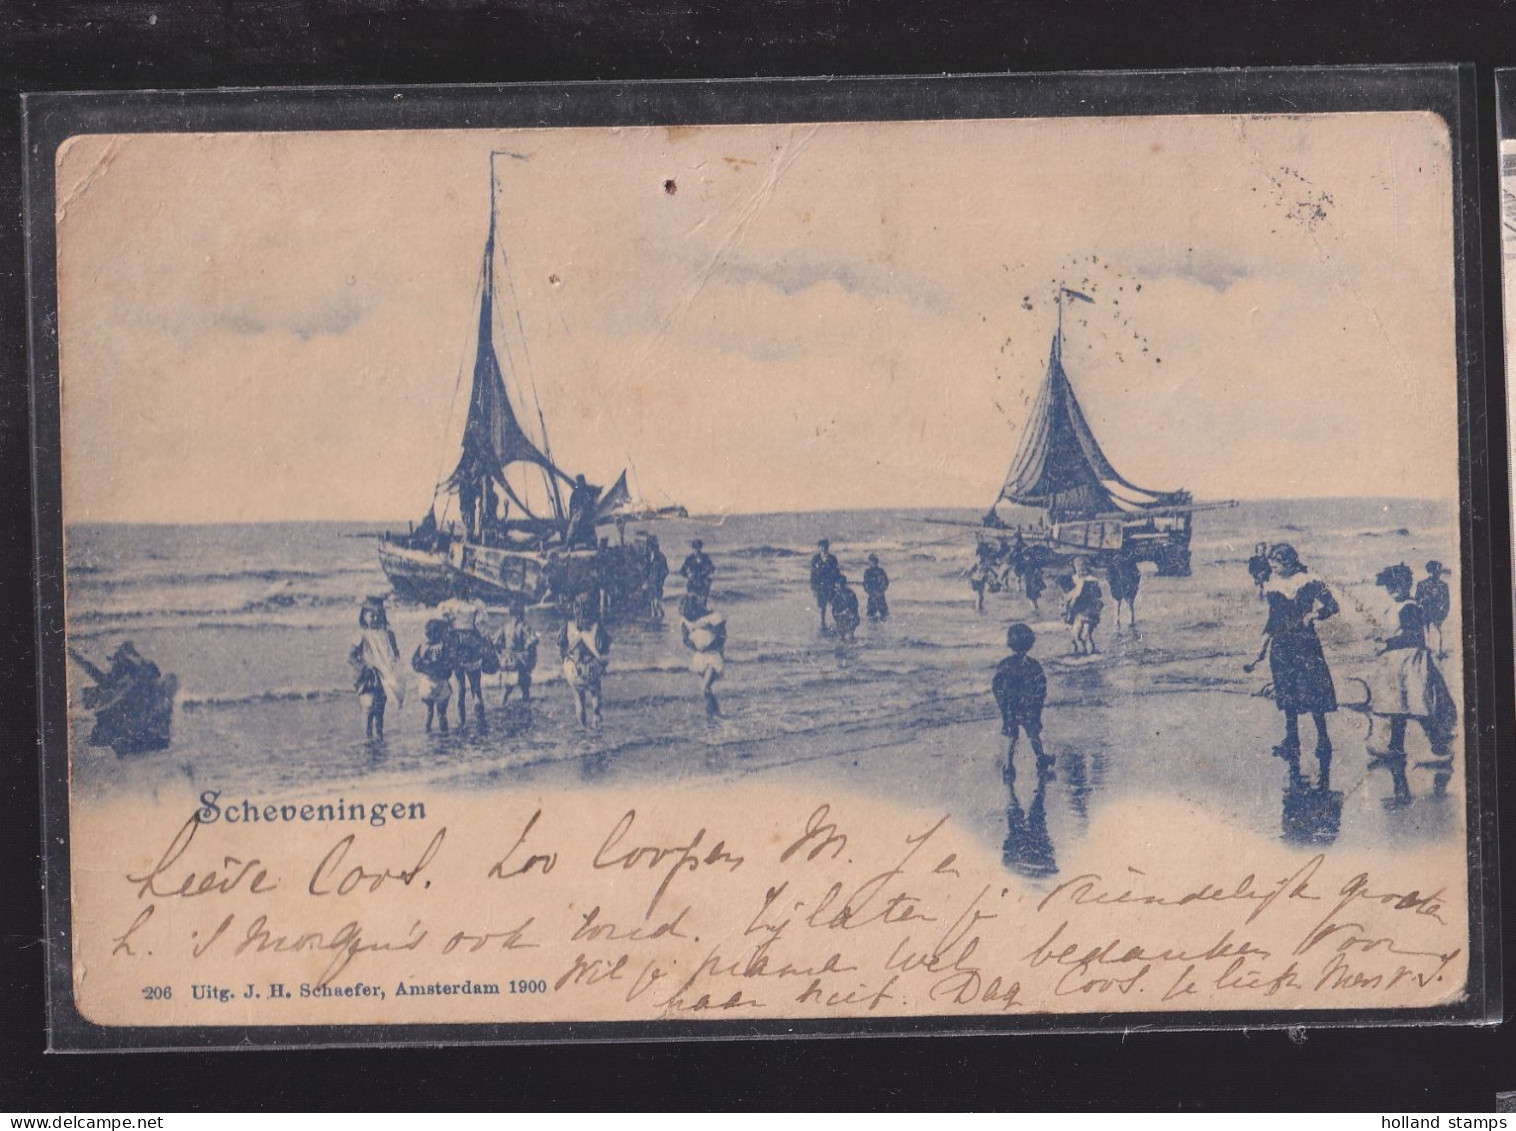 Scheveningen
Lieve Coos. Zoo loopen M. J en
h. 's Morgen's ook rond. Zij laten je vriendelijk groeten
Wil je mama wel bedanken voor
haar brief. Dag Coos. Je liefh
206 Uitg. J. H. Schaefer, Amsterdam 1900
holland stamps